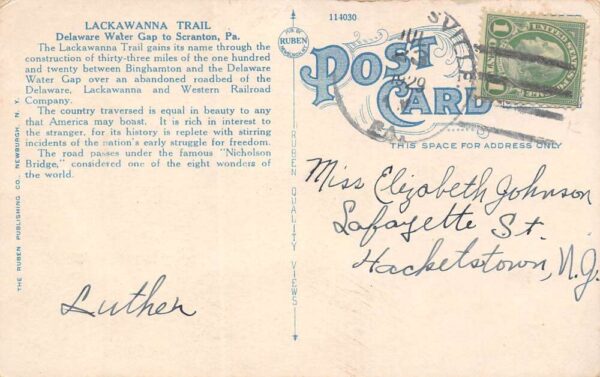 LACKAWANNA TRAIL
Delaware Water Gap to Scranton, Pa.
The Lackawanna Trail gains its name through the
construction of thirty-three miles of the one hundred
and twenty between Binghamton and the Delaware
Water Gap over an abandoned roadbed of the
Delaware, Lackawanna and Western Railroad
Company.
The country traversed is equal in beauty to any
that America may boast. It is rich in interest to
the stranger, for its history is replete with stirring
incidents of the nation's early struggle for freedom.
The road passes under the famous "Nicholson
Bridge," considered one of the eight wonders of
the world.
THE RUBEN PUBLISHING CO., NEWBURGH, N. Y.
Luther
RUBEN QUALITY VIEWS
RUBEN
114030
POST
CARD
THIS SPACE FOR ADDRESS ONLY
SVILLE
JUL
1929
PA.
UNITED STATES
1
1
Miss Elizabeth Johnson
Lafayette St.
Hacketstown, N.J.